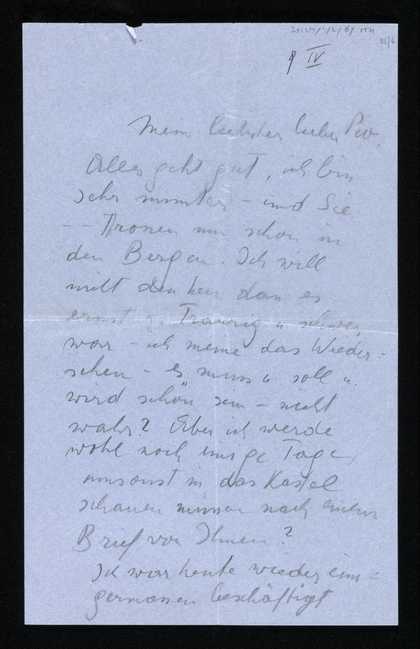 9 IV
Mein liebster lieber Piv.
Alles geht gut, ich bin
sehr munter - und Sie
-- thronen nun schon in
den Bergen. Ich will
nicht denken dass es
ernst u. traurig u schwer
war - ich meine das Wieder-
sehen - es muss u soll u.
wird schön sein - nicht
wahr? Aber ich werde
wohl noch einige Tage
umsonst in das Kastel
schauen müssen nach einem
Brief von Ihnen?
Ich war heute wieder eini-
germassen beschäftigt